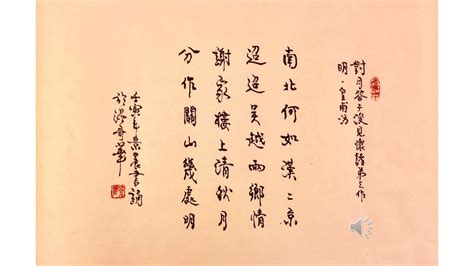 對月答子浚見懷諸弟之作
明·皇甫汸
南北何如漢二京
迢迢吳越兩鄉情
謝家樓上清秋月
分作關山幾處明
壬寅年書誦
於